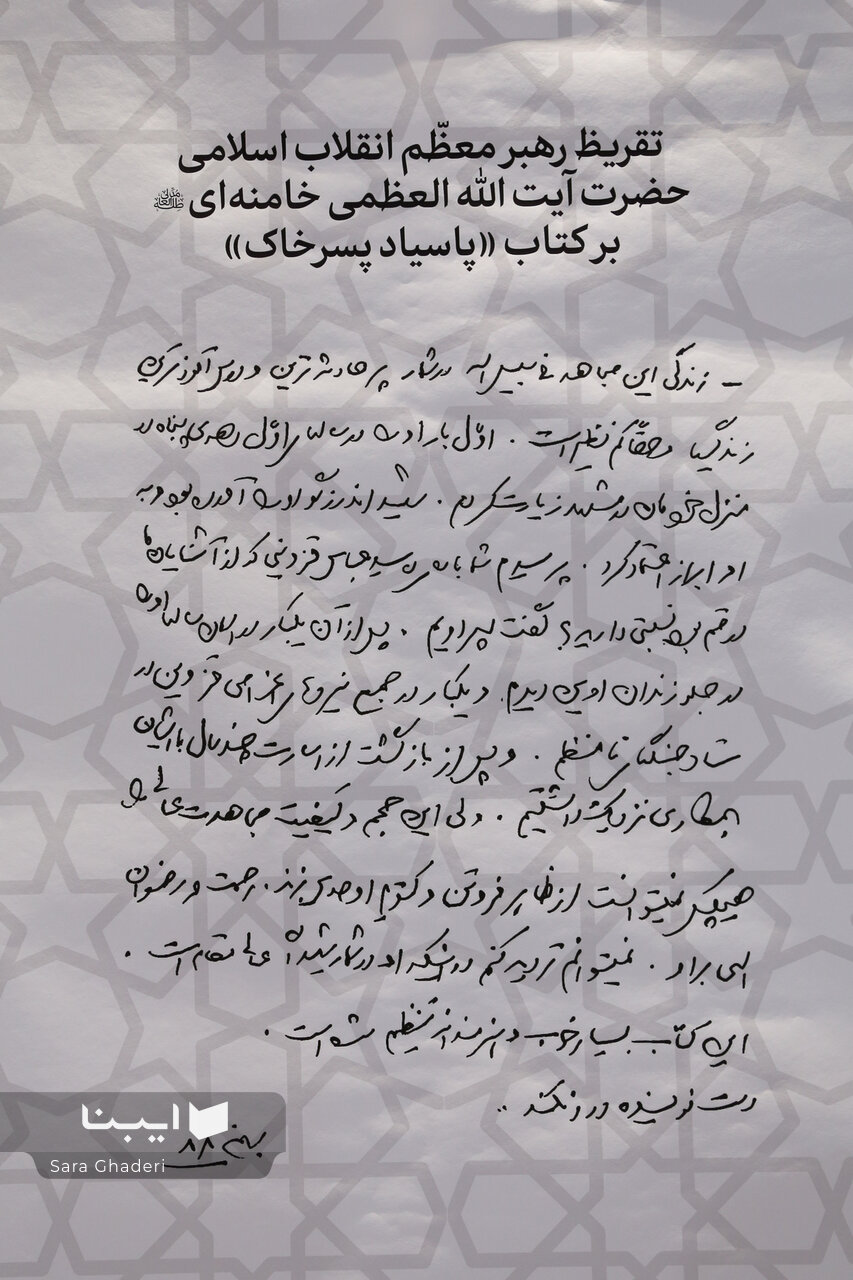 تقریظ رهبر معظّم انقلاب اسلامی
حضرت آیت الله العظمی خامنه‌ای
بر کتاب «پاسیاد پسر خاک»
– زندگی این مجاهد فی سبیل اله در شمار پر حادثه‌ترین و درس‌آموزترین
زندگیها و حقّاً کم نظیر است . اوّل بار او را در سالهای اوّل دهه‌ی پنجاه در
منزل خودمان در مشهد زیارت کردم . شهید اندرزگو او را آورده بود و به
او ابراز اعتماد کرد . پرسیدم شما با آقای سید عباس قزوینی که از آشنایان ما
در قم بود نسبتی دارید؟ گفت پسر اویم . پس از آن یکبار در سالهای
در جلو زندان اوین دیدم . و یکبار در جمع نیروهای اعزامی قزوین در
ستاد جنگهای نامنظم . و پس از بازگشت از اسارت چند سال با ایشان
همکاری نزدیک داشتیم . ولی این حجم و کیفیت مجاهدت عالی را
هیچکس نمیتوانست از ظاهر فروتن و کتوم او حدس بزند . رحمت و رضوان
الهی بر او . نمیتوانم تردید کنم در اینکه او در شمار شهدای عالی مقام است .
این کتاب بسیار خوب و هنرمندانه تنظیم شده است .
دست نویسنده درد نکند ..
بهمن ۸۸
ایبنا
Sara Ghaderi